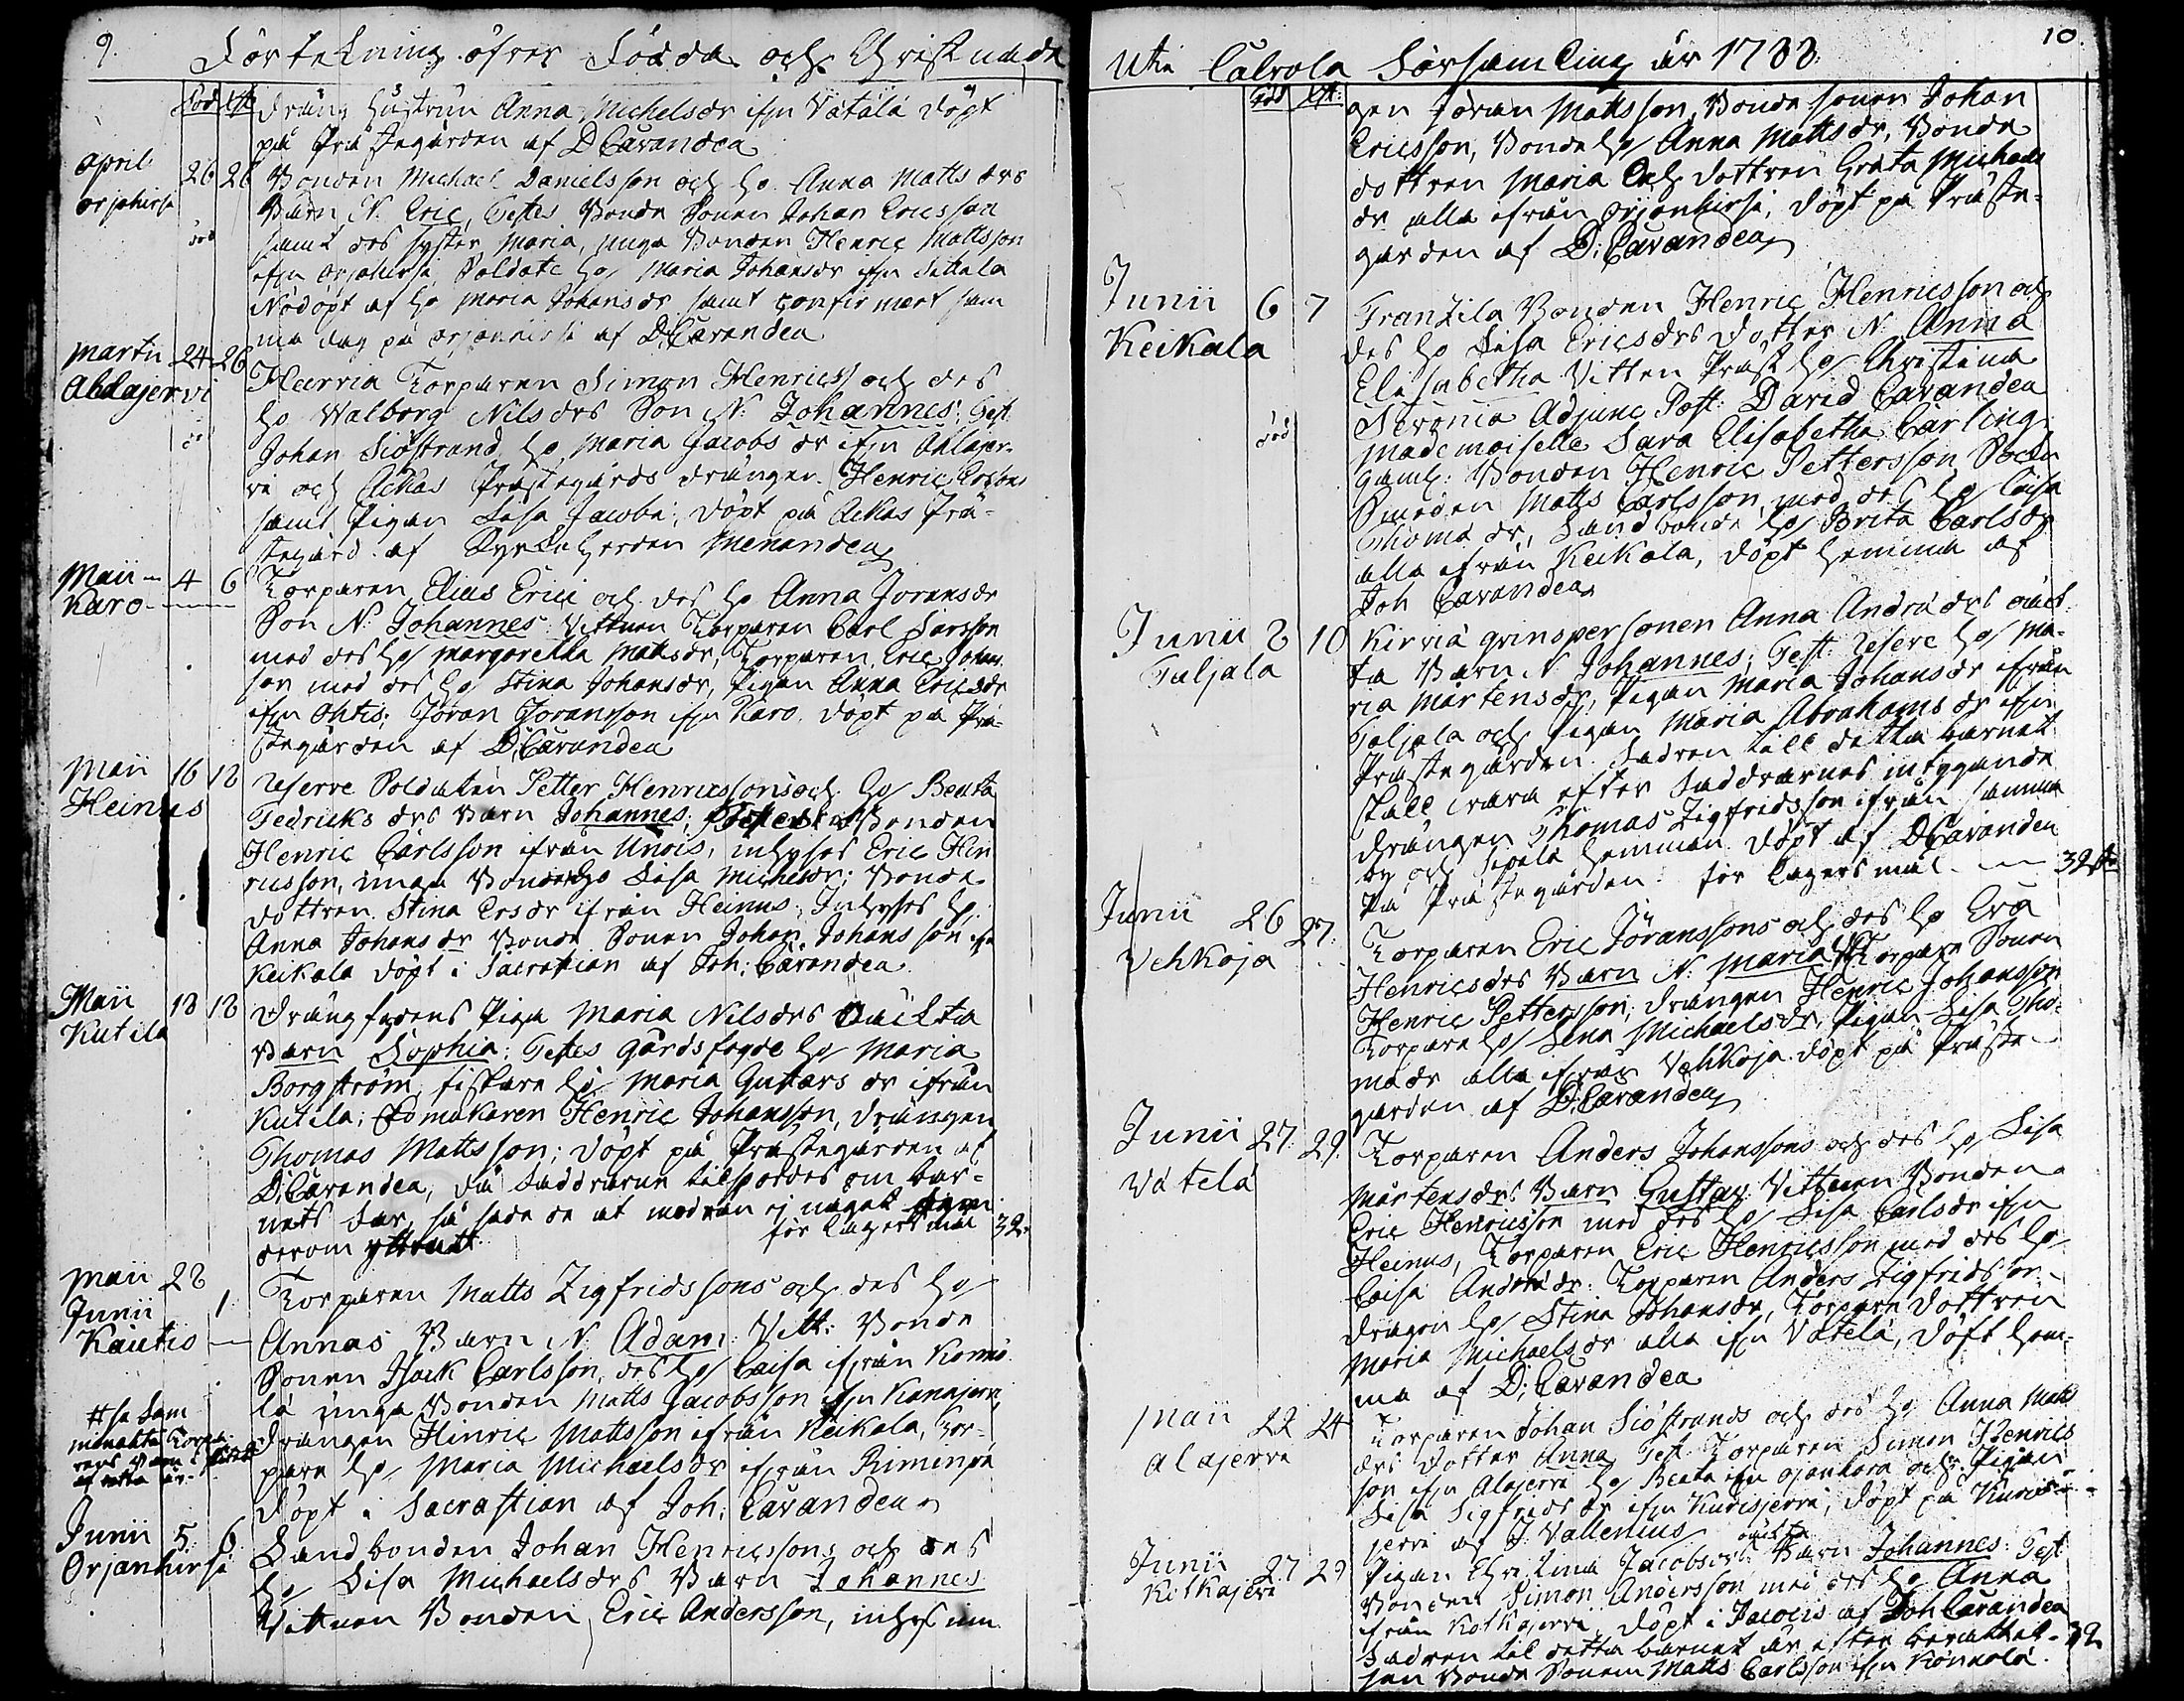 9.
Förtekning öfver Födda och Christnade
Född Xst
Dräng hustrun Anna Michelsdr ifrn Vatala döpt
på Prästegården af D Cavandea
April 26 26
Orjohirsi
Bonden Michael Danielsson och h: Anna Mattsdrs
Barn N. Eric, Testes Bonde Sonen Johan Ericsson
samt des syster Maria, unga Bonden Henric Mattsson
ifrn Orjohirsi, Soldate h: Maria Johansdr ifrn
död
Nöddöpt af h: Maria Johansdr samt confirmert sam
ma dag på Orjannissi af D: Cavandea
Martii 24 26
Ahlajervi
Harvia Torparen Simon Henricss och des
h: Walborg Nilsdrs Son N: Johannes. Test.
Johan Siöstrand, h: Maria Jacobsdr ifrn Ahlajer-
vi och Ackas Prästegårds drängen Henric
samt Pigan Lisa Jacobs; döpt på Ackas Prä-
stegård af Kyrkoherden Menandea
Maii 4 6
Karo
Torparen Elias Erici och des h: Anna Joransdr
Son N: Johannes. Vittnen Torparen Carl Larsson
med des h: Margaretha Mattsdr, Torparen Eric Johans
son med des h: Stina Johansdr, Pigan Anna Ericsdr
ifrn Ohtis; Joran Joransson ifrn Karo. döpt på Prä-
stegården af D: Cavandea
Maii 16 18
Heinus
Reserve Soldaten Petter Henricssons och h: Beata
Fedricks drs Barn Johannes; Testes Bonden
Henric Carlsson ifrån Unois, inhyses Eric Hen
ricsson, unga Bonde h: Lisa Michelsdr; Bonde
dottren Stina Ersdr ifrån Heinus, Inhyses h:
Anna Johansdr Bonde Sonen Johan Johansson ifrn
Keikala döpt i Sacrastian af Joh: Cavandea
Maii 18 18
Kutila
Drängfadens Piga Maria Nilsdrs oäckta
Barn Sophia: Testes gårdsfogde h: Maria
Borgström, fiskare h: Maria Gustavsdr ifrån
Kutila; Skomakaren Henric Johansson, drängen
Thomas Mattsson; Döpt på Prästegården af
D: Cavandea, då faddrarne tilspordes om bar-
nets far, så sade de at modren ej något
derom yttrat
för lägersmål 32
Maii 28
Junii 1
Kautio
Torparen Matts Zigfridssons och des h:
Annas Barn N: Adam. Vitt: Bonde
Sonen Isack Carlsson, des h: Caisa ifrån Konno
la unga Bonden Matts Jacobsson ifrn Kanajerv,
drängen Hinric Mattsson ifrån Keikala, Tor-
pare h: Maria Michaelsdr ifrån
döpt i Sacrastian af Joh: Cavandea
# se Sam
Torpa-
rens Barn
af detta år.
Junii 5 6
Orjanhirsi
Landbonden Johan Henricssons och des
h: Lisa Michaelsdrs Barn Johannes
Vittnen Bonden Eric Andersson, inhys
Uti Calvola Församling år 1788.
10.
född Xst:
gen Joran Mattsson, Bonde sonen Johan
Ericsson, Bonde h: Anna Mattsdr, Bonde
dottren Maria och dottren Greta Michels
dr alla ifrån Orjanhirsi, döpt på Präste-
gården af D: Cavandea
Junii 6 7
Keikala
Franzila Bonden Henric Henricsson och
des h: Lisa Ericsdrs dotter N: Anna
Elisabetha Vitten Präst h: Christina
Adjunc Past: David Cavandea
död
Mademoiselle Sara Elisabetha Carling,
gaml: Bonden Henric Pettersson Sockn
Smeden Matts Carlsson med des h: Caisa
Thomadr, Landbonde h: Brita Carlsdr
alla ifrån Keikala, döpt hemma af
Joh Cavandea
Junii 8 10
Taljala
Kirviä qvinspersonen Anna Andradrs oäck
ta Barn N Johannes, Test: Reserv h: Ma-
ria Mårtensdr, Pigan Maria Johansdr ifrån
Taljala och Pigan Maria Abrahamsdr ifrn
Prästegården. Fadren till detta barnet
skall vara efter faddrarnes intygande
drängen Thomas Zigfridsson ifrån samma
by och Sepälä hemman döpt af D Cavandea
På Prästegården för lägersmål 32
Junii 26 27.
Vehkoja
Torparen Eric Jöranssons och des h: Eva
Henricsdrs Barn N: Maria; Torpare Sonen
Henric Pettersson, drängen Henric Johansson
Torpare h: Lena Michaelsdr, Pigan Lisa Tho-
madr alla ifrån Vehkoja döpt på Präste-
gården af D: Cavandea
Junii 27 29.
Vatela
Torparen Anders Johanssons och des h: Lisa
Mårtensdrs Barn Gustav. Vittnen Bonden
Eric Henricsson med des h: Lisa Carlsdr ifrn
Heinus, Torparen Eric Henricsson med des h:
Caisa Andradr: Torparen Anders Zigfridsson
dragon h: Stina Johansdr, Torpare dottren
Maria Michaelsdr alla ifrn Vatela, döpt hem-
ma af D: Cavandea
Maii 22 24
Alajerve
Torparen Johan Siöstrands och des h: Anna Matts
drs dotter Anna Test Torparen Simon Henrics
son ifrn Alajerve h: Beata ifrn och Pigan
Lisa Sigfridsdr ifrn Kurisjerve; döpt på Kuris-
jerve af J: Vallenius
Junii 27 29
Kotkajerv
Pigan Christina Jacobsdrs oäckta Barn Johannes: Test
Bonden Simon Andersson med des h: Anna
ifrån Kotkajervi, döpt i Jacois af Joh Cavandea
Fadren til detta barnet är efter berättel- 32
sen Bonde Sonen Matts Carlsson ifrn Konnola.